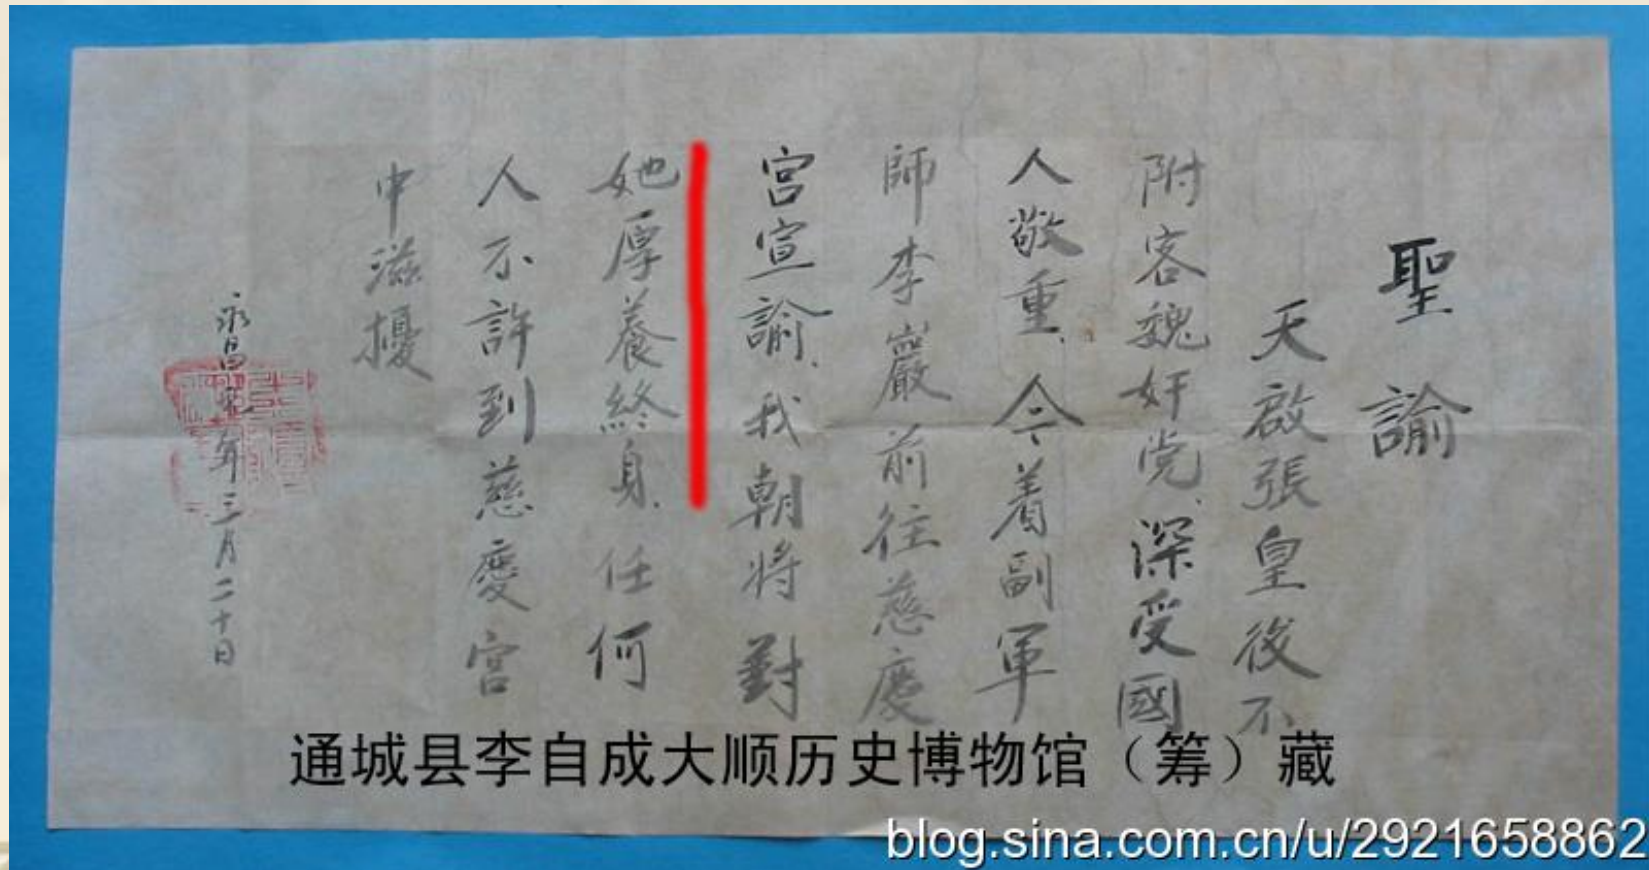 聖諭
天啟張皇後不
附客魏奸党、深受國
人敬重、令着副軍
師李巖前往慈慶
宮宣諭、我朝将對
她厚養終身、任何
人不許到慈慶宮
中滋擾
永昌元年三月二十日
通城县李自成大顺历史博物馆（筹）藏
blog.sina.com.cn/u/2921658862